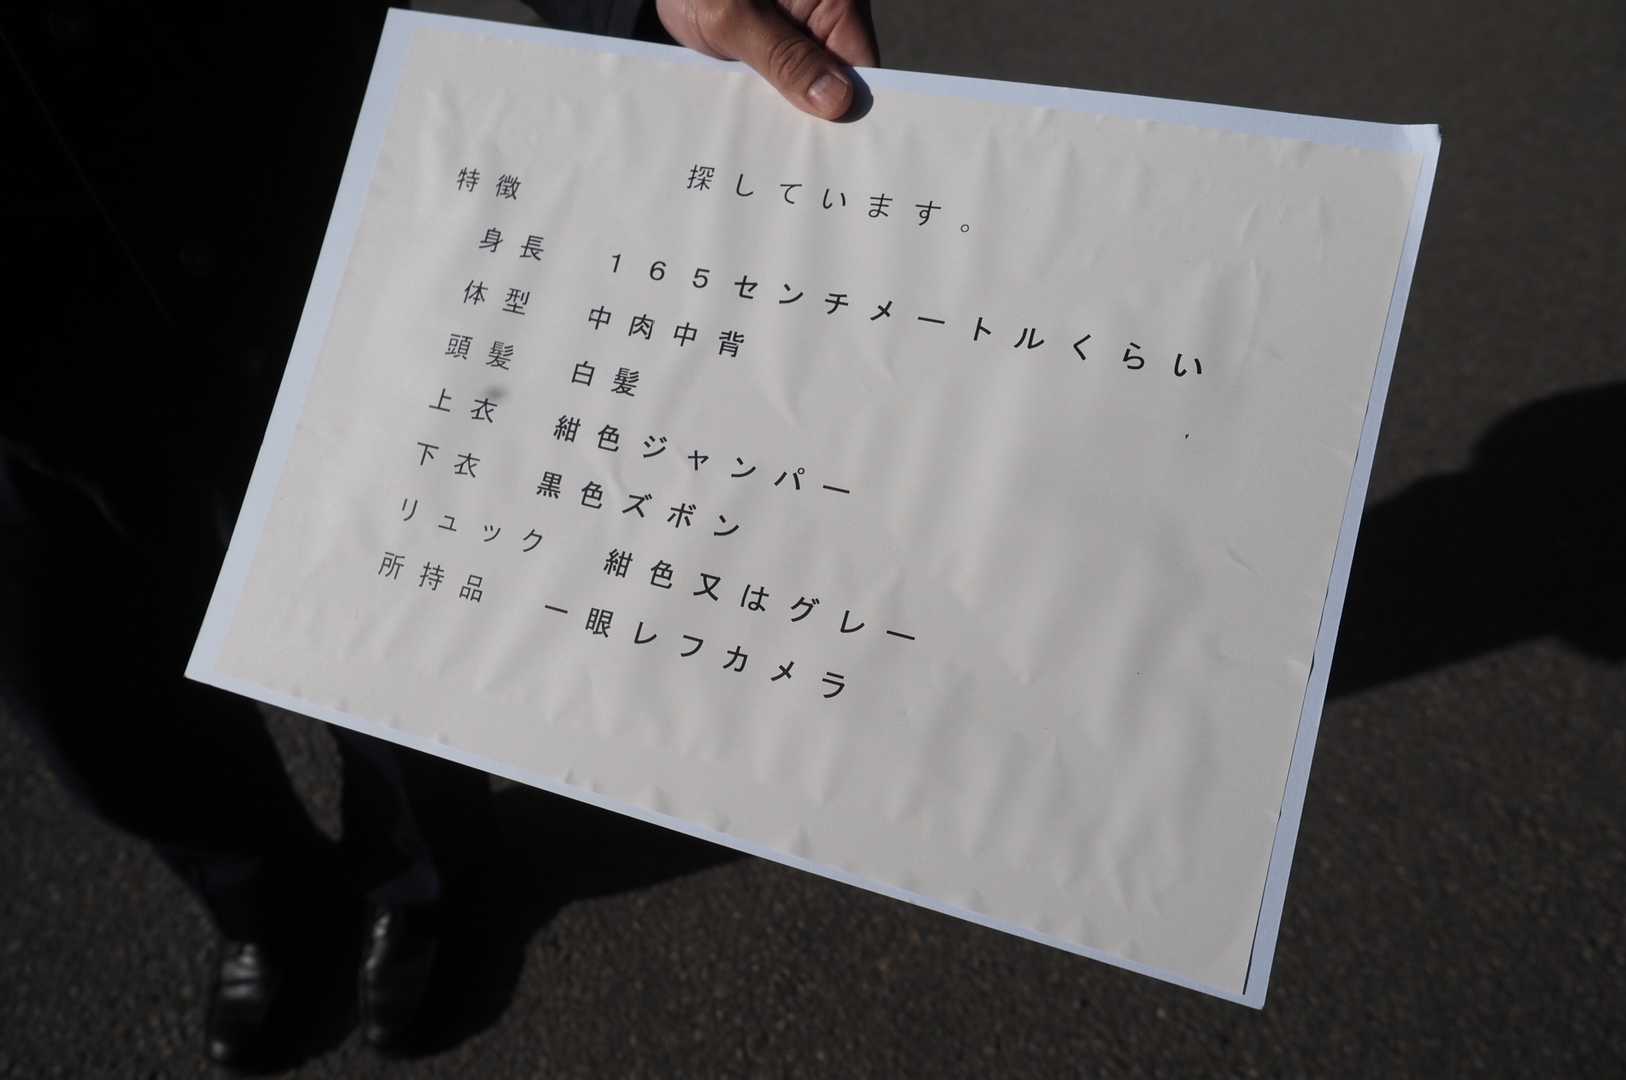 探しています。
特徴
身長 １６５センチメートルくらい
体型 中肉中背
頭髪 白髪
上衣 紺色ジャンパー
下衣 黒色ズボン
リュック 紺色又はグレー
所持品 一眼レフカメラ